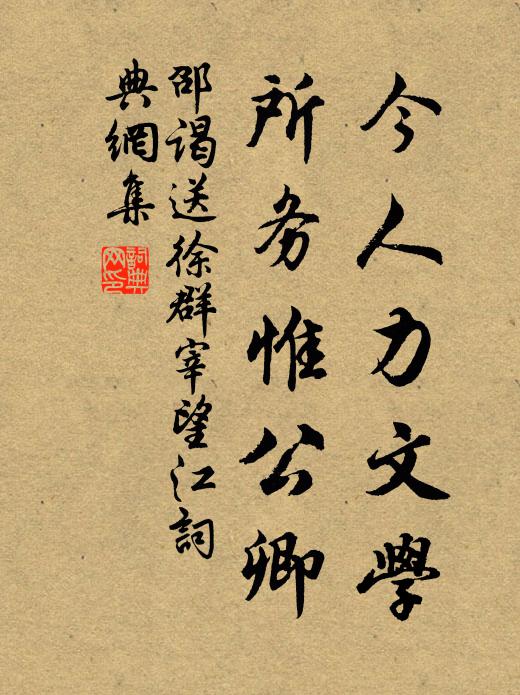 今人力文學
所务惟公卿
邵谒送徐群宰望江詞
典網集
詞典
网印